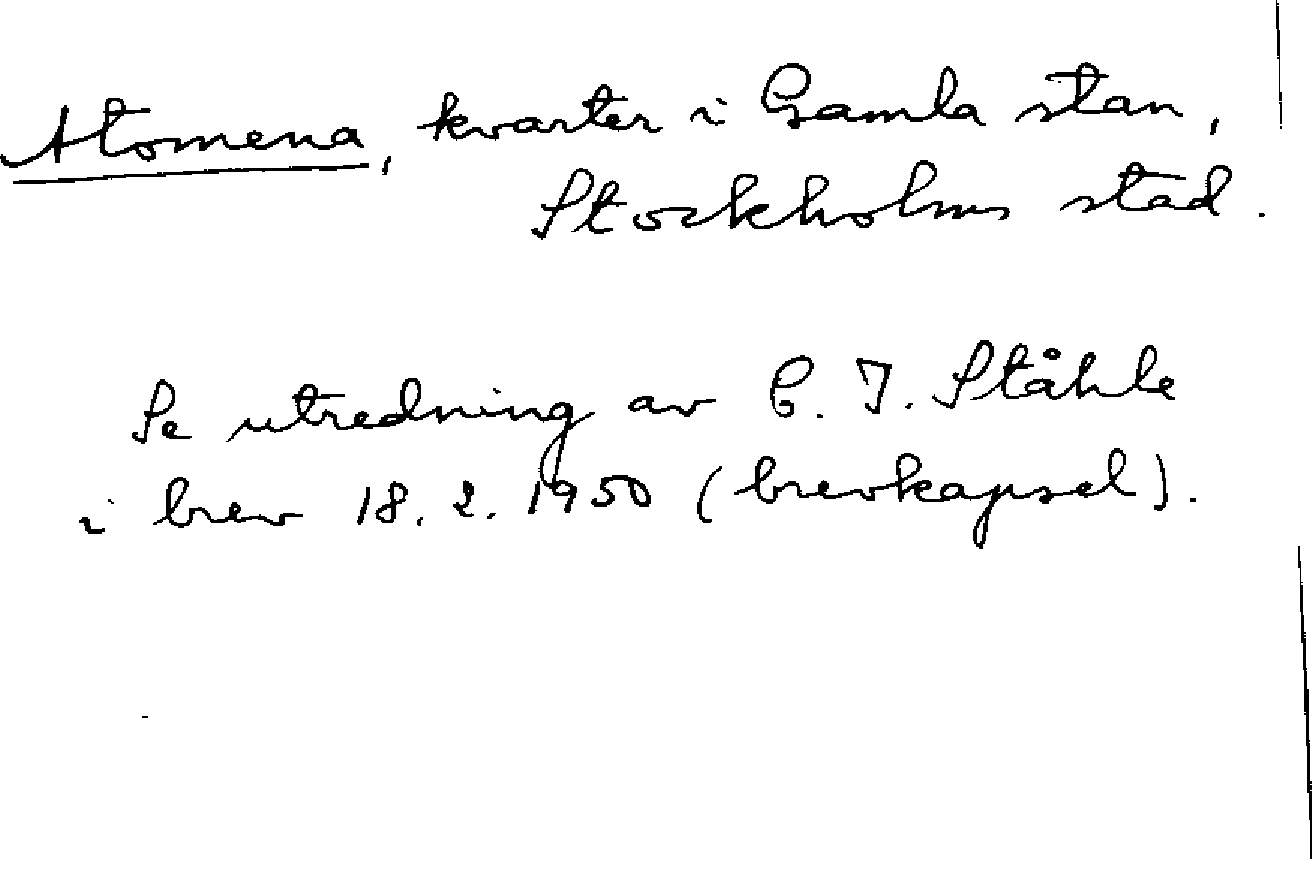 Atomena, kvarter i Gamla stan,
Stockholms stad.
Se utredning av C. I. Ståhle
i brev 18. 2. 1950 (brevkapsel).